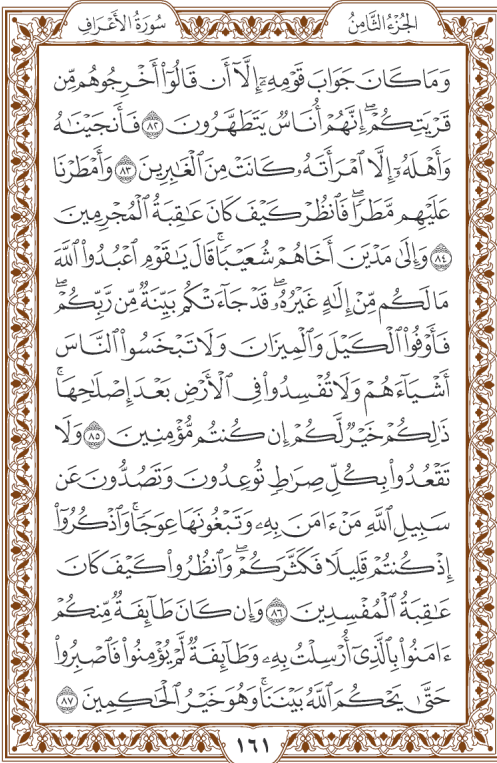 الجُزْءُ الثَّامِنُ
سُورَةُ الأَعْرَافِ
وَمَا كَانَ جَوَابَ قَوْمِهِۦٓ إِلَّآ أَن قَالُوٓا۟ أَخْرِجُوهُم مِّن
قَرْيَتِكُمْۖ إِنَّهُمْ أُنَاسٌ يَتَطَهَّرُونَ ٨٢ فَأَنجَيْنَٰهُ
وَأَهْلَهُۥٓ إِلَّا ٱمْرَأَتَهُۥ كَانَتْ مِنَ ٱلْغَٰبِرِينَ ٨٣ وَأَمْطَرْنَا
عَلَيْهِم مَّطَرًاۖ فَٱنظُرْ كَيْفَ كَانَ عَٰقِبَةُ ٱلْمُجْرِمِينَ
٨٤ وَإِلَىٰ مَدْيَنَ أَخَاهُمْ شُعَيْبًاۚ قَالَ يَٰقَوْمِ ٱعْبُدُوا۟ ٱللَّهَ
مَا لَكُم مِّنْ إِلَٰهٍ غَيْرُهُۥۖ قَدْ جَآءَتْكُم بَيِّنَةٌ مِّن رَّبِّكُمْۖ
فَأَوْفُوا۟ ٱلْكَيْلَ وَٱلْمِيزَانَ وَلَا تَبْخَسُوا۟ ٱلنَّاسَ
أَشْيَآءَهُمْ وَلَا تُفْسِدُوا۟ فِى ٱلْأَرْضِ بَعْدَ إِصْلَٰحِهَاۚ
ذَٰلِكُمْ خَيْرٌ لَّكُمْ إِن كُنتُم مُّؤْمِنِينَ ٨٥ وَلَا
تَقْعُدُوا۟ بِكُلِّ صِرَٰطٍ تُوعِدُونَ وَتَصُدُّونَ عَن
سَبِيلِ ٱللَّهِ مَنْ ءَامَنَ بِهِۦ وَتَبْغُونَهَا عِوَجًاۚ وَٱذْكُرُوٓا۟
إِذْ كُنتُمْ قَلِيلًا فَكَثَّرَكُمْۖ وَٱنظُرُوا۟ كَيْفَ كَانَ
عَٰقِبَةُ ٱلْمُفْسِدِينَ ٨٦ وَإِن كَانَ طَآئِفَةٌ مِّنكُمْ
ءَامَنُوا۟ بِٱلَّذِىٓ أُرْسِلْتُ بِهِۦ وَطَآئِفَةٌ لَّمْ يُؤْمِنُوا۟ فَٱصْبِرُوا۟
حَتَّىٰ يَحْكُمَ ٱللَّهُ بَيْنَنَاۚ وَهُوَ خَيْرُ ٱلْحَٰكِمِينَ ٨٧
١٦١